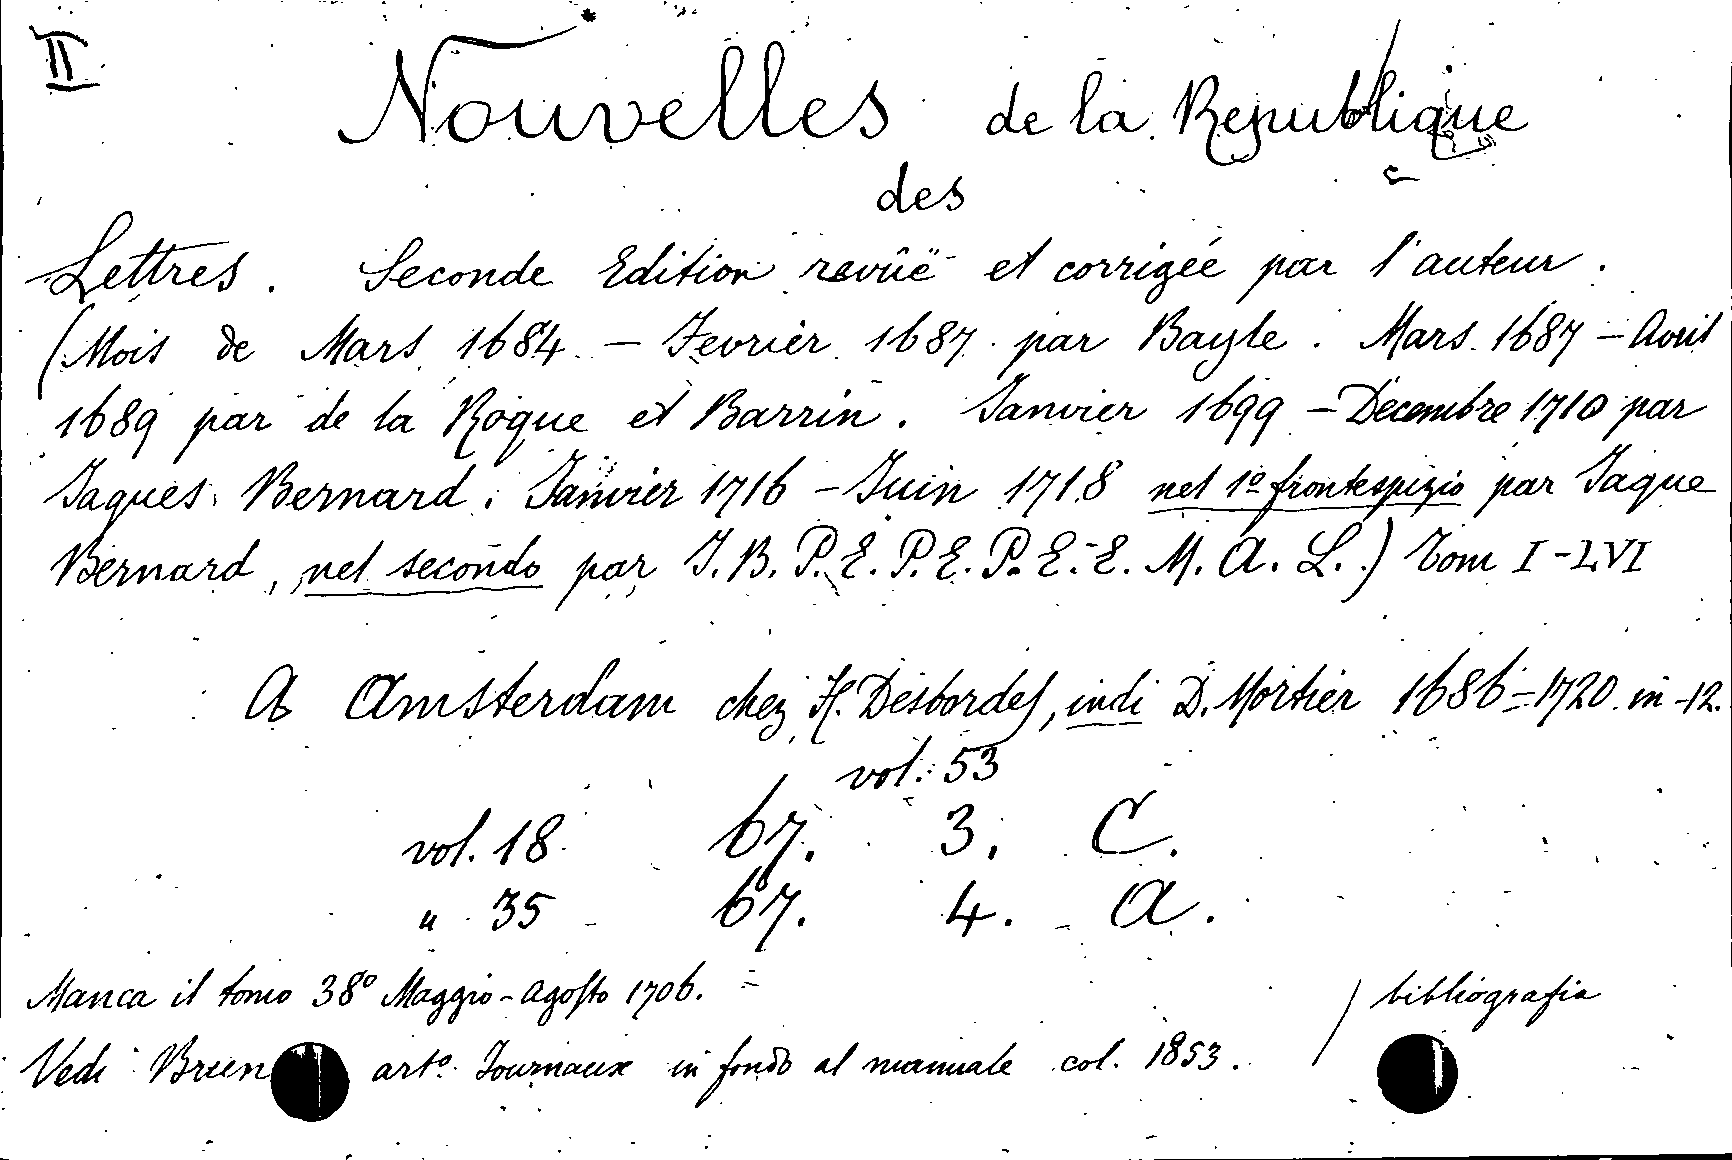 II
Nouvelles de la Republique
des
Lettres. Seconde Edition revûë et corrigée par l'auteur.
(Mois de Mars 1684 – Fevrier 1687 par Bayle. Mars 1687 – Avril
1689 par de la Roque et Barrin. Janvier 1699 – Decembre 1710 par
Jaques Bernard. Janvier 1716 – Juin 1718 nel 1º frontespizio par Jaque
Bernard, nel secondo par J. B. P. E. P. E. P. E. E. M. A. L.) Tom I-LVI
A Amsterdam chez H. Desbordes, indi D. Mortier 1686-1720 in-12.
vol. 53
vol. 18 67. 3. C.
" 35 67. 4. A.
Manca il tomo 38º Maggio-Agosto 1706.
/ bibliografia
Vedi artº Journaux in fondo al manuale col. 1853.